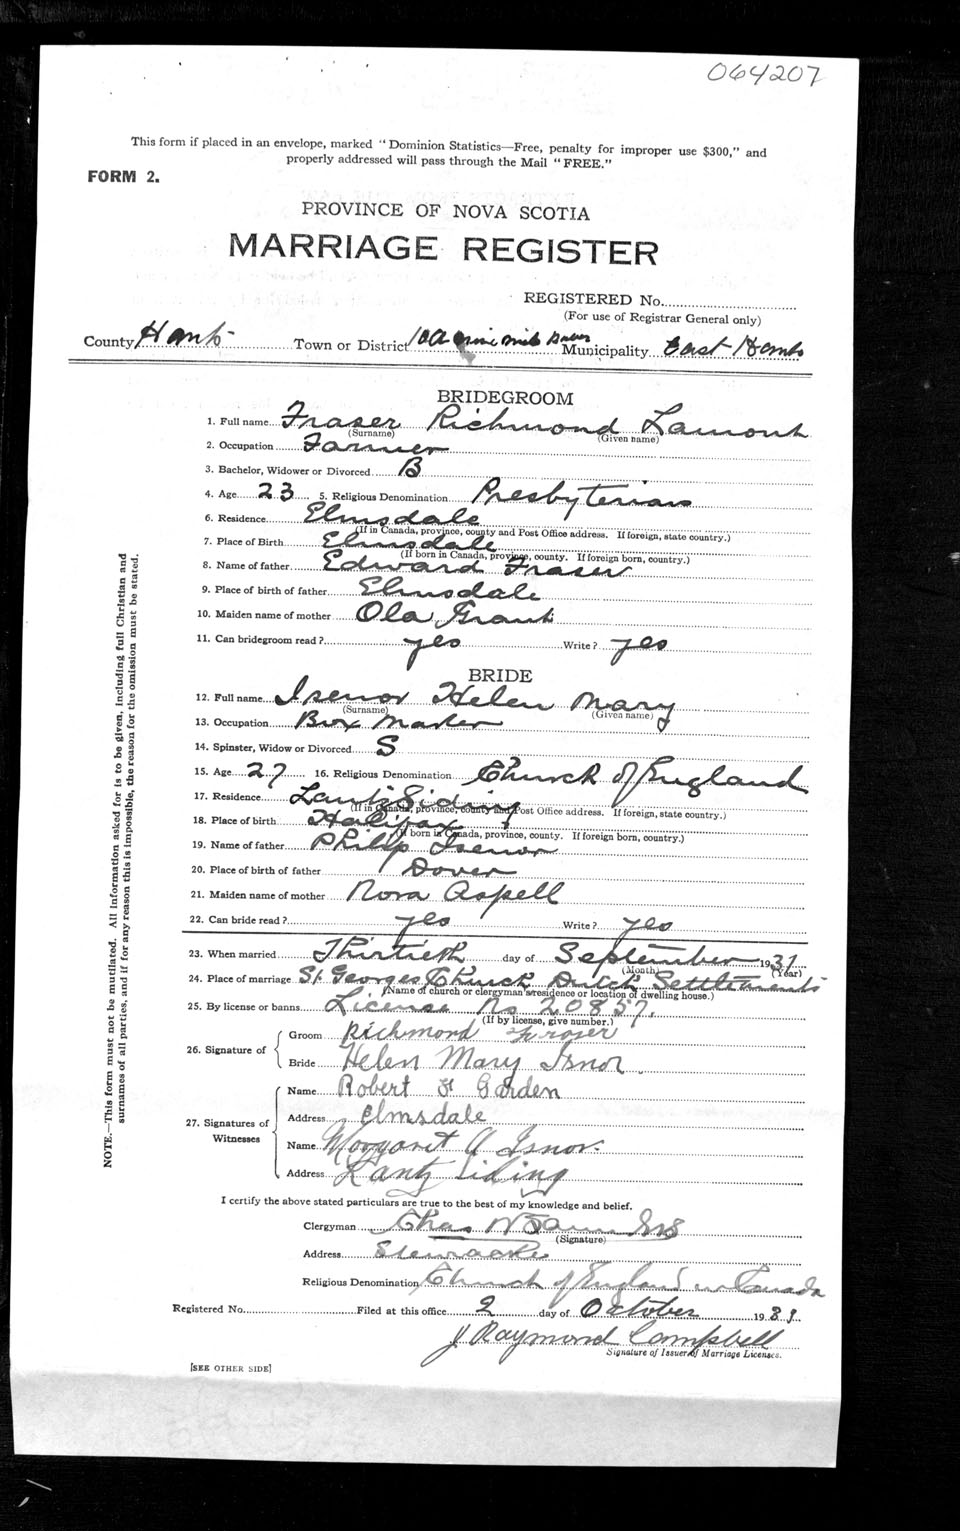 064207
This form if placed in an envelope, marked "Dominion Statistics—Free, penalty for improper use $300," and
properly addressed will pass through the Mail "FREE."
FORM 2.
PROVINCE OF NOVA SCOTIA
MARRIAGE REGISTER
REGISTERED No.
(For use of Registrar General only)
County Hants Town or District 10A nine mile River Municipality East Hants
BRIDEGROOM
1. Full name Fraser Richmond Lamont
(Surname) (Given name)
2. Occupation Farmer
3. Bachelor, Widower or Divorced B
4. Age 23 5. Religious Denomination Presbyterian
6. Residence Elmsdale
(If in Canada, province, county and Post Office address. If foreign, state country.)
7. Place of Birth Elmsdale
(If born in Canada, province, county. If foreign born, country.)
8. Name of father Edward Fraser
9. Place of birth of father Elmsdale
10. Maiden name of mother Ola Grant
11. Can bridegroom read? yes Write? yes
BRIDE
12. Full name Isenor Helen Mary
(Surname) (Given name)
13. Occupation Box Maker
14. Spinster, Widow or Divorced S
15. Age 27 16. Religious Denomination Church of England
17. Residence Lantz Siding
(If in Canada, province, county and Post Office address. If foreign, state country.)
18. Place of birth Halifax
(If born in Canada, province, county. If foreign born, country.)
19. Name of father Phillip Isenor
20. Place of birth of father Dover
21. Maiden name of mother Nora Aspell
22. Can bride read? yes Write? yes
23. When married Thirtieth day of September 1931
(Month) (Year)
24. Place of marriage St Georges Church Dutch Settlements
(Name of church or clergyman's residence or location of dwelling house.)
25. By license or banns License No 20857.
(If by license, give number.)
26. Signature of
Groom Richmond Fraser
Bride Helen Mary Isnor
27. Signatures of Witnesses
Name Robert H Garden
Address Elmsdale
Name Margaret A Isnor
Address Lantz Siding
I certify the above stated particulars are true to the best of my knowledge and belief.
Clergyman Chas W
(Signature)
Address Stewiacke
Religious Denomination Church of England in Canada
Registered No. Filed at this office 2 day of October 1931
J Raymond Campbell
Signature of Issuer of Marriage Licenses.
[SEE OTHER SIDE]
NOTE.—This form must not be mutilated. All information asked for is to be given, including full Christian and
surnames of all parties, and if for any reason this is impossible, the reason for the omission must be stated.